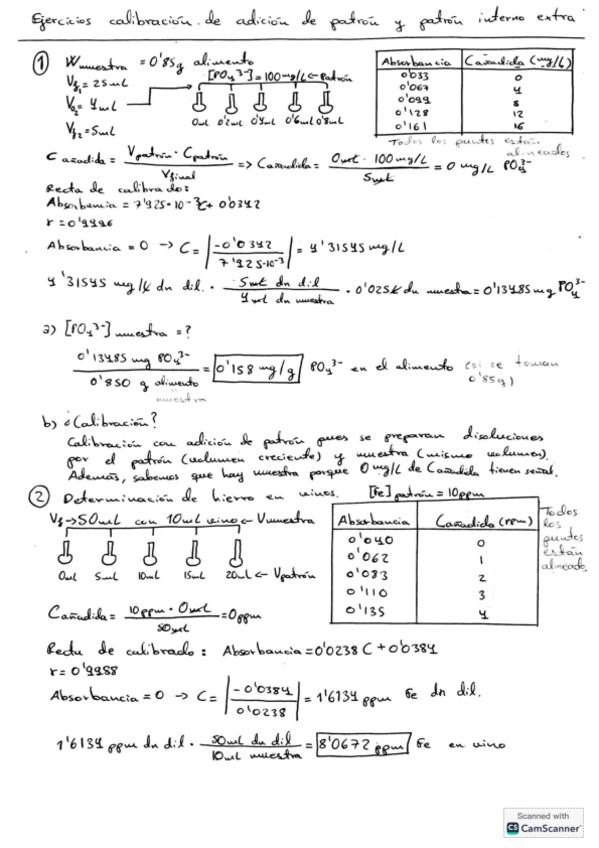 Ejercicios calibración de adición de patrón y patrón interno extra
① Wmuestra = 0'85g alimento
Vf1 = 25mL
[PO4 3-] = 100mg/L ← Patrón
Va2 = 4mL
Vf2 = 5mL
0mL 0'2mL 0'4mL 0'6mL 0'8mL
Absorbancia Cañadida (mg/L)
0'033 0
0'067 4
0'099 8
0'128 12
0'161 16
Todos los puntos están alineados
Cañadida = Vpatrón · Cpatrón / Vfinal => Cañadida = 0mL · 100mg/L / 5mL = 0 mg/L PO4 3-
Recta de calibrado:
Absorbancia = 7'925·10-3 C + 0'0342
r = 0'9996
Absorbancia = 0 → C = |-0'0342 / 7'925·10-3| = 4'31545 mg/L
4'31545 mg/L dn dil. · 5mL dn dil / 4mL dn muestra · 0'025L dn muestra = 0'13485 mg PO4 3-
a) [PO4 3-] muestra = ?
0'13485 mg PO4 3- / 0'850 g alimento muestra = 0'158 mg/g PO4 3- en el alimento (si se toman 0'85g)
b) ¿Calibración?
Calibración con adición de patrón pues se preparan disoluciones
por el patrón (volumen creciente) y muestra (mismo volumen).
Además, sabemos que hay muestra porque 0 mg/L de Cañadida tienen señal.
② Determinación de hierro en vinos. [Fe] patrón = 10ppm
Vf → 50mL con 10mL vino ← Vmuestra
0mL 5mL 10mL 15mL 20mL ← Vpatrón
Absorbancia Cañadida (ppm)
0'040 0
0'062 1
0'083 2
0'110 3
0'135 4
Todos los puntos están alineado.
Cañadida = 10ppm · 0mL / 50mL = 0ppm
Recta de calibrado: Absorbancia = 0'0238 C + 0'0384
r = 0'9988
Absorbancia = 0 → C = |-0'0384 / 0'0238| = 1'6134 ppm Fe dn dil.
1'6134 ppm dn dil · 50mL dn dil / 10mL muestra = 8'0672 ppm Fe en vino
Scanned with
CS CamScanner